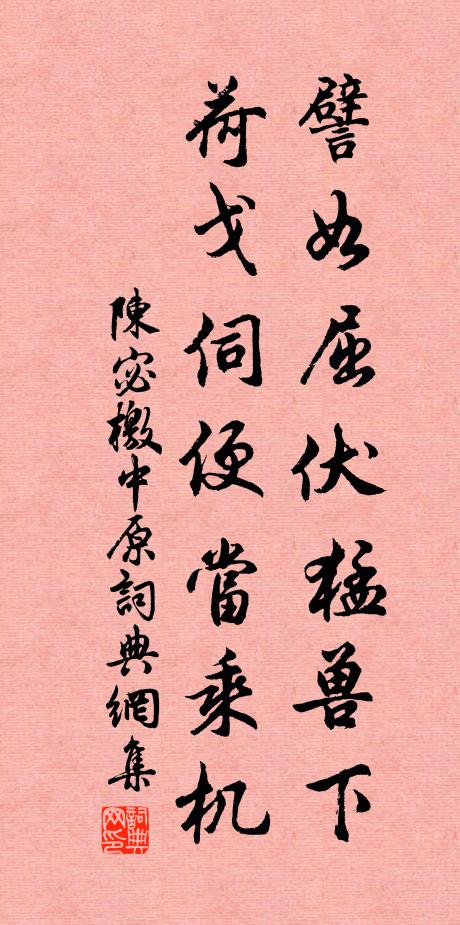 譬如屈伏猛兽下
荷戈伺便當乘机
陳宓檄中原詞典網集
詞典
网印